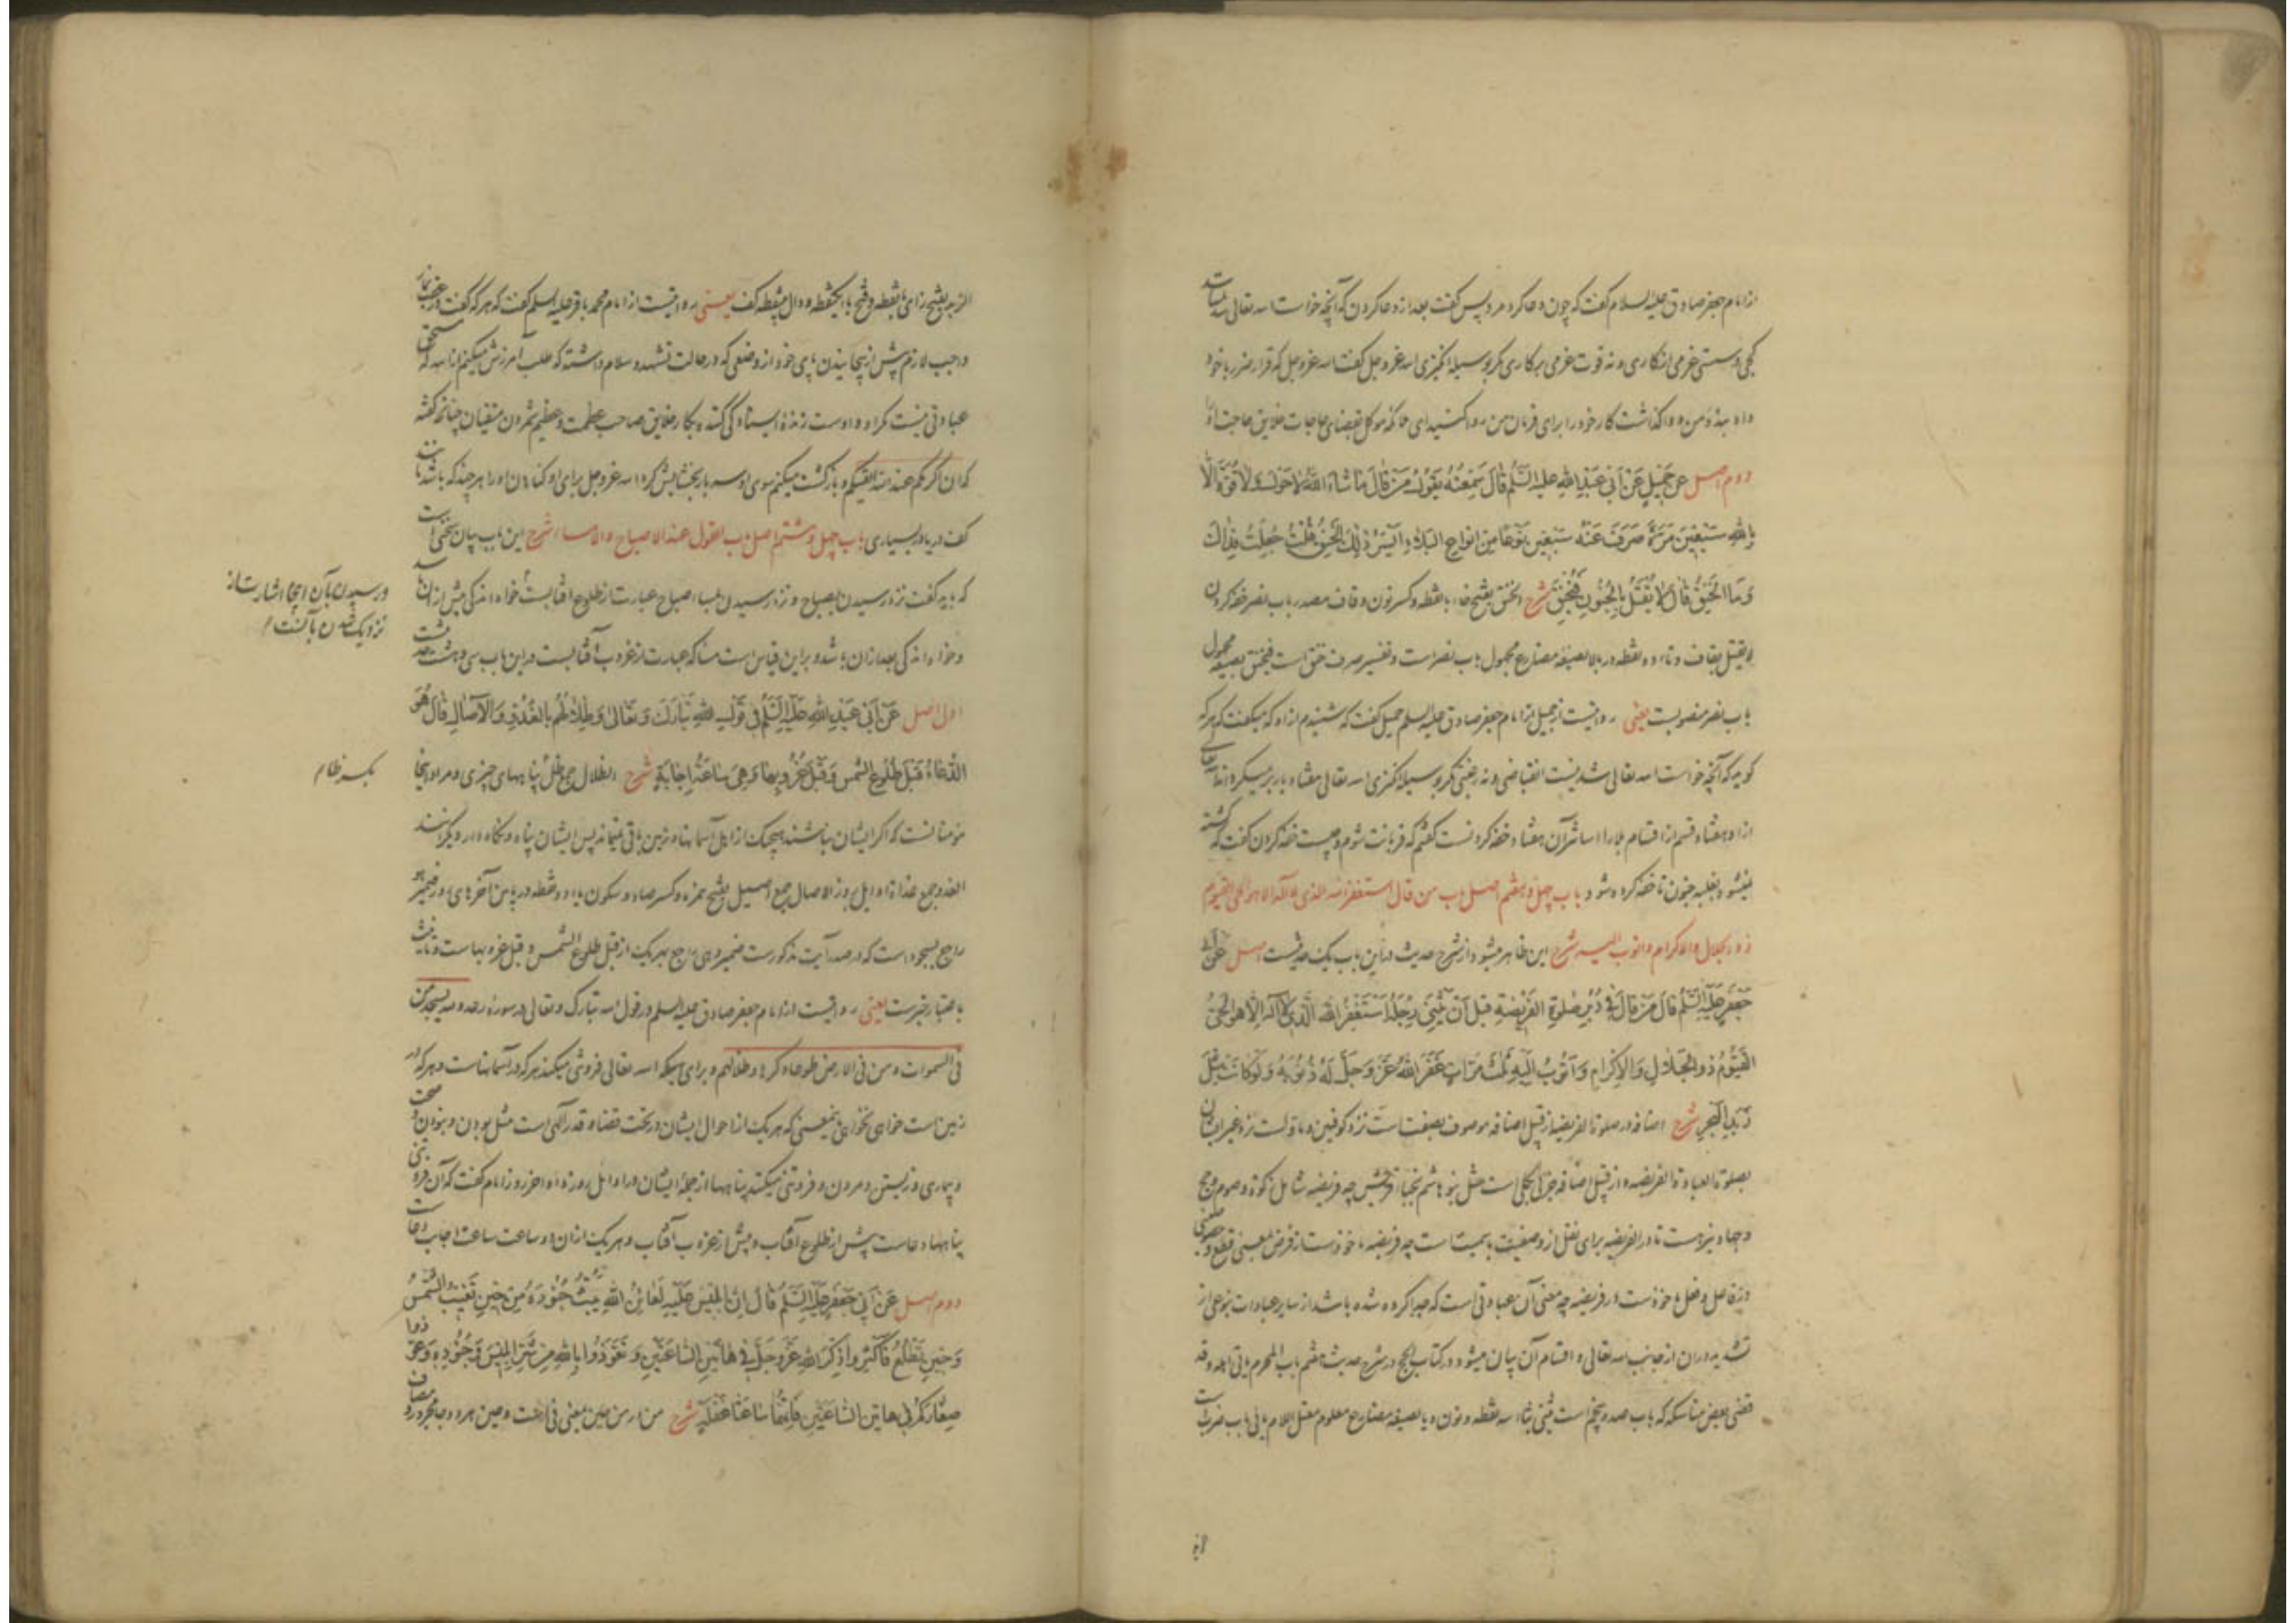 از امام جعفر صادق علیه السلام گفت که چون دعا کرد مرد پس گفت بعد از دعا کردن که آنچه خواست الله تعالی شد نیست
کجی و سستی عزمی از کاری و نه قوت عزمی بر کاری مگر بوسیله انگیزی الله عز و جل گفت الله عز و جل که قرار ضرر با خود
داد بندهٔ من و واگذاشت کار خود را برای فرمان من روا کنید ای ملائکه موکل بقضای حاجات خلایق حاجت او را
دوم اصل عَنْ جَمیلٍ عَنْ اَبی عَبْدِ اللهِ علیه السَّلم قالَ سَمِعْتُهُ یَقُولُ مَنْ قالَ مَا شاءَ اللهُ لا حَولَ وَلا قُوَّةَ اِلّا
بِاللهِ سَبْعینَ مَرَّةً صَرَفَ عَنْهُ سَبْعین نَوعًا مِنْ انواعِ البَلاءِ اَیْسَرُ ذٰلِكَ الخَنِقُ قُلْتُ جُعِلْتُ فِداكَ
وَمَا الخَنِقُ قالَ لا یُقْتَلُ بِالجُنُونِ فَیُخْنَقَ شرح الخنق بفتح خاء بانقطه و کسر نون و قاف مصدر باب نصر خفه کردن
لا یقتل بقاف و تاء دو نقطه در بالا بصیغه مضارع مجهول باب نصر است و تفسیر صرف خنق است فیخنق بصیغه مجهول
باب نصر منصوبست یعنی روایتست از جمیل از امام جعفر صادق علیه السلم جمیل گفت که شنیدم از او که میگفت که هر که
گوید که آنچه خواست الله تعالی شد نیست انقباضی و نه رغبتی مگر بوسیله انگیزی الله تعالی هفتاد بار برمیگرداند الله تعالی
از او هفتاد قسم از اقسام بلا را آسانتر آن هفتاد خفه کردنست گفتم که قربانت شوم و چیست خفه کردن گفت که کشته
نمیشود بغلبه جنون تا خفه کرده شود باب چهل و هفتم اصل باب من قال استغفر الله الذی لا اله الا هو الحی القیوم
ذو الجلال والاکرام واتوب الیه شرح این ظاهر میشود از شرح حدیث در این باب یک حدیثست اصل عَنْ اَبی
جَعْفَرٍ عَلَیْهِ السَّلم قالَ مَنْ قالَ فی دُبُرِ صَلوةِ الفَریضَةِ قَبلَ اَنْ یَثْنِیَ رِجْلَهُ اَسْتَغْفِرُ اللهَ الَّذی لا اله اِلّا هو الحَیُّ
القَیُّومُ ذو الجَلالِ وَالاِکرامِ وَاَتُوبُ اِلَیهِ ثَلثَ مَرّاتٍ غَفَرَ اللهُ عَزَّ وَجَلَّ لَهُ ذُنُوبَهُ وَلَو کانَتْ مِثْلَ
زَبَدِ البَحرِ شرح اضافه در صلوة الفریضه از قبیل اضافه موصوف بصفتست نزد کوفیین و ماولست نزد غیر ایشان
بصلوة العبادة الفریضه و از قبیل اضافه جزء بکل است مثل بنو هاشم نجباء قریش چه فریضه شامل زکوة و صوم و حج
و جهاد نیز هست تا در الفریضه برای نقل از وصفیت باسمیتست چه فریضه ماخوذست از فرض بمعنی قطع و
و فاصل و فصل ماخوذست در فریضه چه معنی آن عبادتی است که جدا کرده شده باشد از سایر عبادات بنوعی از
تشدید در آن از جانب الله تعالی و اقسام آن بیان میشود در کتاب الحج در شرح حدیث هفتم باب المحرم یاتی اهله وقد
قضی بعض مناسکه که باب صد و پنجم است یثنی بثاء سه نقطه و نون و یا بصیغه مضارع معلوم معتل اللام یایی باب ضربست
الزبد بفتح زای بانقطه و فتح باء یکنقطه و دال بینقطه کف یعنی روایتست از امام محمد باقر علیه السلم گفت که هر که گفت در عقب نماز
واجب لازم پیش از پیچانیدن پای خود از وضعی که در حالت تشهد و سلام داشته که طلب آمرزش میکنم از الله که مستحق
عبادتی نیست مگر او و اوست زندهٔ ایستادگی کننده بکار خلایق صاحب عظمت و عظیم شمردن متقیان چنانچه گفته
که ان اکرمکم عند الله اتقیکم و بازگشت میکنم سوی او سه بار بخشایش کرد الله عز و جل برای او گناهان او را هر چند که باشد مانند
کف دریا در بسیاری باب چهل و هشتم اصل باب القول عند الاصباح والامساء شرح این باب بیان سخنی است
که باید گفت نزد رسیدن بصباح و نزد رسیدن بمساء اصباح عبارت از طلوع آفتابست خواه اندکی پیش از آن باشد
و خواه اندکی بعد از آن باشد و براین قیاس است مسا که عبارت از غروب آفتابست در این باب سی و هشت حدیث
اول اصل عَنْ اَبی عَبْدِ اللهِ عَلَیْهِ السَّلم فی قَولِ اللهِ تَبارَكَ وَتَعالیٰ وَظِلالُهُم بِالغُدُوِّ وَالآصالِ قالَ هُوَ
الدُّعاءُ قَبلَ طُلُوعِ الشَّمسِ وَقَبْلَ غُرُوبِها وَهِیَ ساعَةُ اِجابَةٍ شرح الظلال جمع ظل پناههای چیزی و مراد اینجا
مؤمنانست که اگر ایشان نباشند هیچیک از اهل آسمانها و زمین باقی نمیماند پس ایشان پناه و نگاه دار دیگرانند
الغدو جمع غداة اوایل روز الاصال جمع اصیل بفتح همزه و کسر صاد و سکون یاء دو نقطه در پایین آخرهای روز ضمیر هو
راجع بسجود است که در صدر آیت مذکورست ضمیر هی راجع بهریک از قبل طلوع الشمس و قبل غروبها است و تانیث
باعتبار خبرست یعنی روایتست از امام جعفر صادق علیه السلم در قول الله تبارک و تعالی در سوره رعد و لله یسجد من
فی السموات و من فی الارض طوعا و کرها و ظلالهم و برای الله تعالی فروتنی میکند هر که در آسمانهاست و هر که در
زمین است خواهی نخواهی بمعنی که هریک از احوال ایشان در تحت قضا و قدر الهی است مثل بودن و نبودن و صحت
و بیماری و زیستن و مردن و فروتنی میکنند پناهها از جمله ایشان در اوایل روز و اواخر روز امام گفت که آن فروتنی
پناهها دعاست پیش از طلوع آفتاب و پیش از غروب آفتاب و هریک از آن دو ساعت ساعت اجابت دعاست
دوم اصل عَنْ اَبی جَعْفَرٍ عَلَیْهِ السَّلم قالَ اِنَّ اِبْلیسَ عَلَیْهِ لَعائِنُ اللهِ یَبُثُّ جُنُودَهُ مِنْ حینِ تَغیبُ الشَّمْسُ
وَحینِ تَطْلُعُ فَاَکْثِرُوا ذِکْرَ اللهِ عَزَّ وَجَلَّ فی هاتَیْنِ السّاعَتَیْنِ وَتَعَوَّذُوا بِاللهِ مِنْ شَرِّ اِبْلیسَ وَجُنُودِهِ وَعَوِّذُوا
صِغارَکُمْ فی هاتَینِ السّاعَتَیْنِ فَاِنَّهُما ساعَتا غَفْلَةٍ شرح من در من حین بمعنی فی است و حین هر دو جا مجرور و مضاف
و رسیدن بآن اینجا اشارتست از
نزدیک شدن بآنست
بکسر ظاء